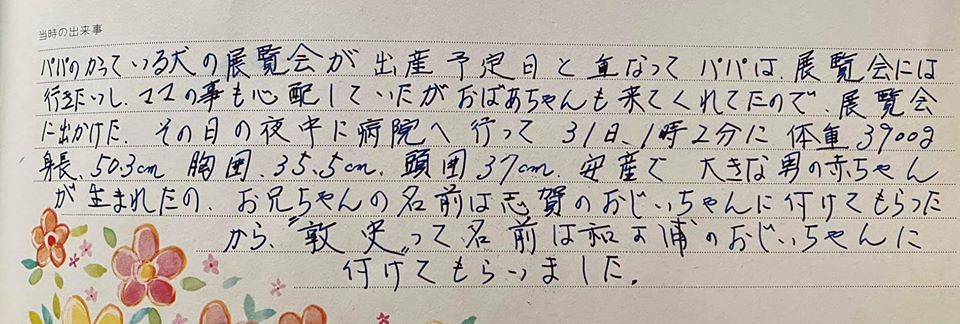 当時の出来事
パパのかっている犬の展覧会が出産予定日と重なってパパは、展覧会には
行きたいし、ママの事も心配していたがおばあちゃんも来てくれてたので、展覧会
に出かけた。その日の夜中に病院へ行って31日、1時2分に体重3900g
身長、50.3cm 胸囲、35.5cm、頭囲37cm、安産で大きな男の赤ちゃん
が生まれたの、お兄ちゃんの名前は志賀のおじいちゃんに付けてもらった
から、"敦史"って名前は和田浦のおじいちゃんに
付けてもらいました。